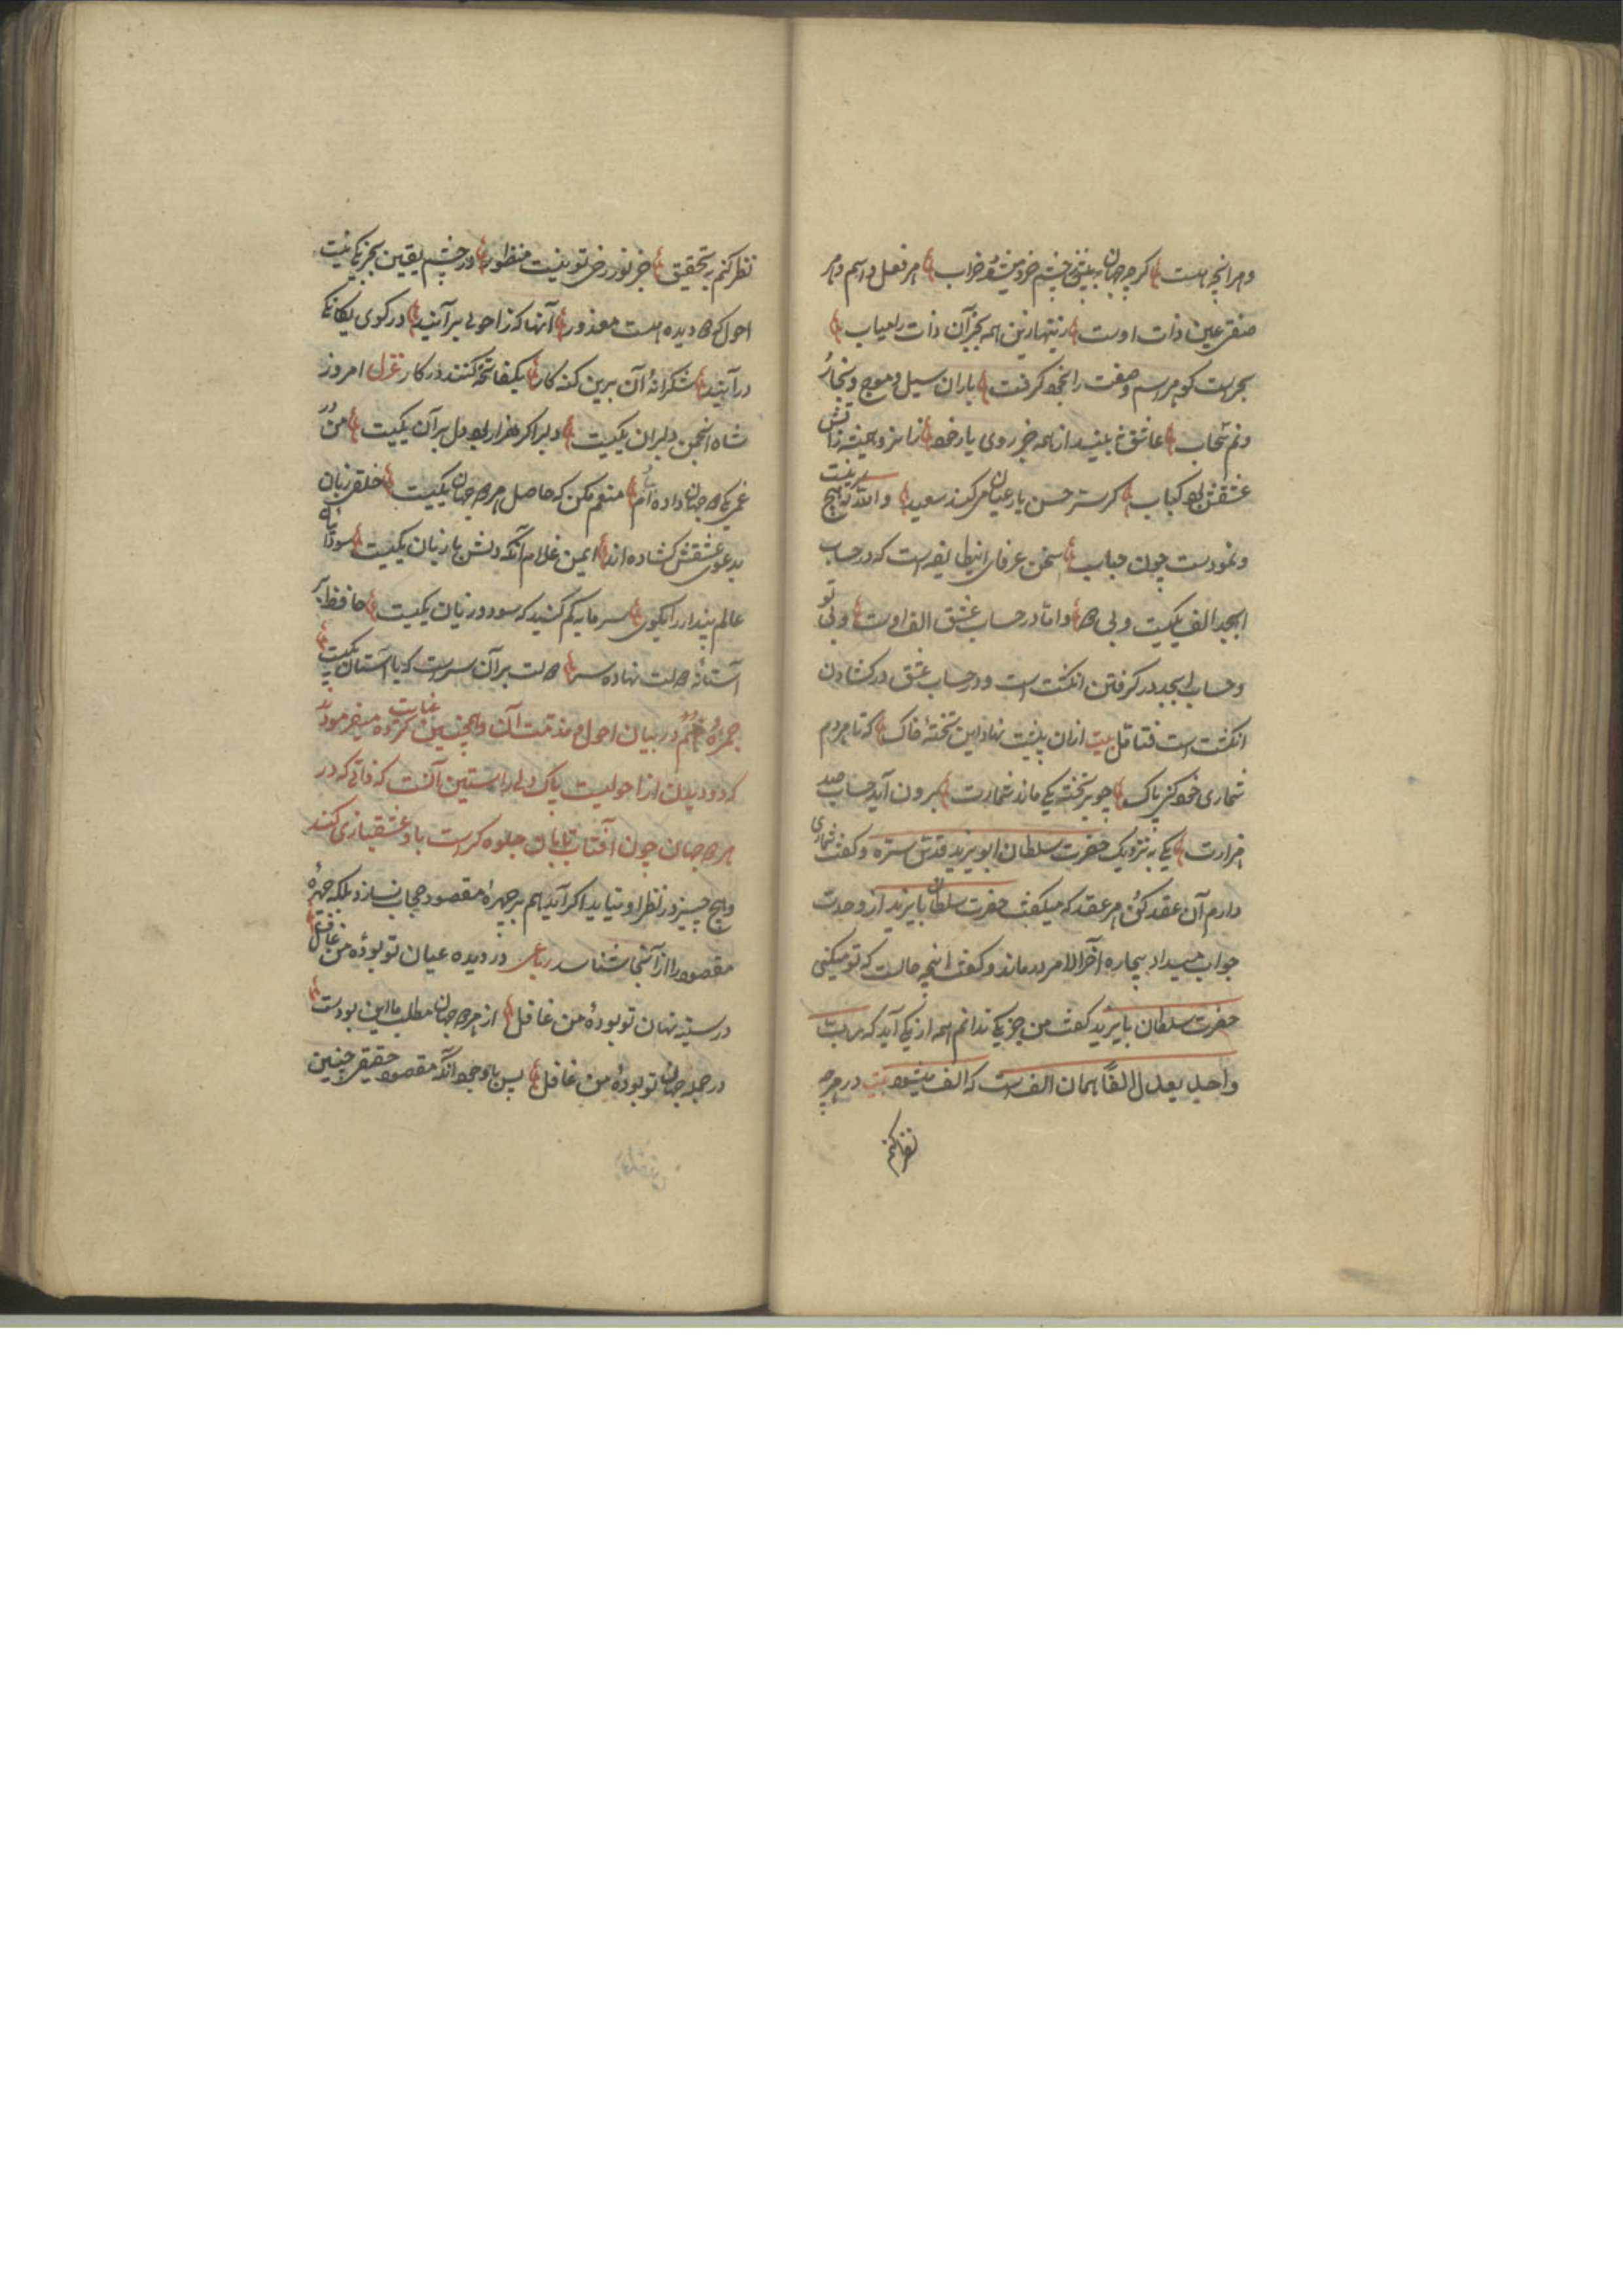 و هر انچه هست گرچه جهان به پیش چشم خردبین خراب هر فعل و اسم و هر
صفتی عین ذات اوست زینهار زین همه بجز آن ذات را میاب
بحریست کو هر اسم و صفت را بخود گرفت باران و سیل و موج و بخار
و نم سحاب عاشق نه بیند از همه جز روی یار خود زانرو همیشه ز آتش
عشقش بود کباب گر ستر حسن یار عیان می کند سعید والله که هیچ نیست
و نمودست چون حباب سخن عرفای این طایفه است که در حساب
ابجد الف یکیست و بی دو و اما در حساب عشق الف اوست و بی تو
و حساب ابجد در گرفتن انگشت است و در حساب عشق در کشادن
انگشت است فتامل بیت ازان پیشت نهاد این تخته خاک که تا هر دم
شماری خود کنی پاک چو بر تخته یکی ماند شمارت برون آید حساب صد
هزارت یکی به نزدیک حضرت سلطان ابویزید قدس سره و گفت شماری
دارم آن عقد کن هر عقد که میگفت حضرت سلطان بایزید از وحدت
جواب میداد بیچاره آخر الامر درماند و گفت اینچه حالت که تو میکنی
حضرت سلطان بایزید گفت من جز یکی ندانم همه از یکی آید که
واحد یعدل الفا همان الف است که الف میشود بیت در هرچه
نظر کنم
نظر کنم به تحقیق جز نور رخ تو نیست منظور در چشم یقین بجز یکی نیست
احول که دو دیده است معذور آنها که ز احولی برآیند در کوی یگانگی
درآیند شکرانه آن برین گنه کار یک فاتحه کنند در کار غزل امروز
شاه انجمن دلبران یکیست دلبر اگر هزار بود دل بر آن یکیست من در
غم یکی دو جهان داده ام منعم مکن که حاصل هر دو جهان یکیست خلقی زبان
بدعوی عشقش کشاده اند ای من غلام آنکه دلش با زبان یکیست سودائیان
عالم پندار را بگوی سرمایه کم کنید که سود و زیان یکیست حافظ بر
آستانه دولت نهاده سر دولت بر آن سرست که با آستان یکیست
جمره دوم در بیان احول و مذمت آن و همچنین غایت کرده میفرمود
که دو دیدن از احولیست پاک دلی راستین آنست که ذاتی که در
هر دو جهان چون آفتاب تابان جلوه گر است با او عشقبازی کند
و هیچ چیز در نظر او نیاید اگر آید هم بر چهره مقصود حجاب نسازد بلکه چهره
مقصود را از آنجا شناسد رباعی در دیده عیان تو بوده من غافل
در سینه نهان تو بوده من غافل از هر دو جهان مطلب ما این بودست
در جمله جهان تو بوده من غافل پس با وجود آنکه مقصود حقیقی چنین